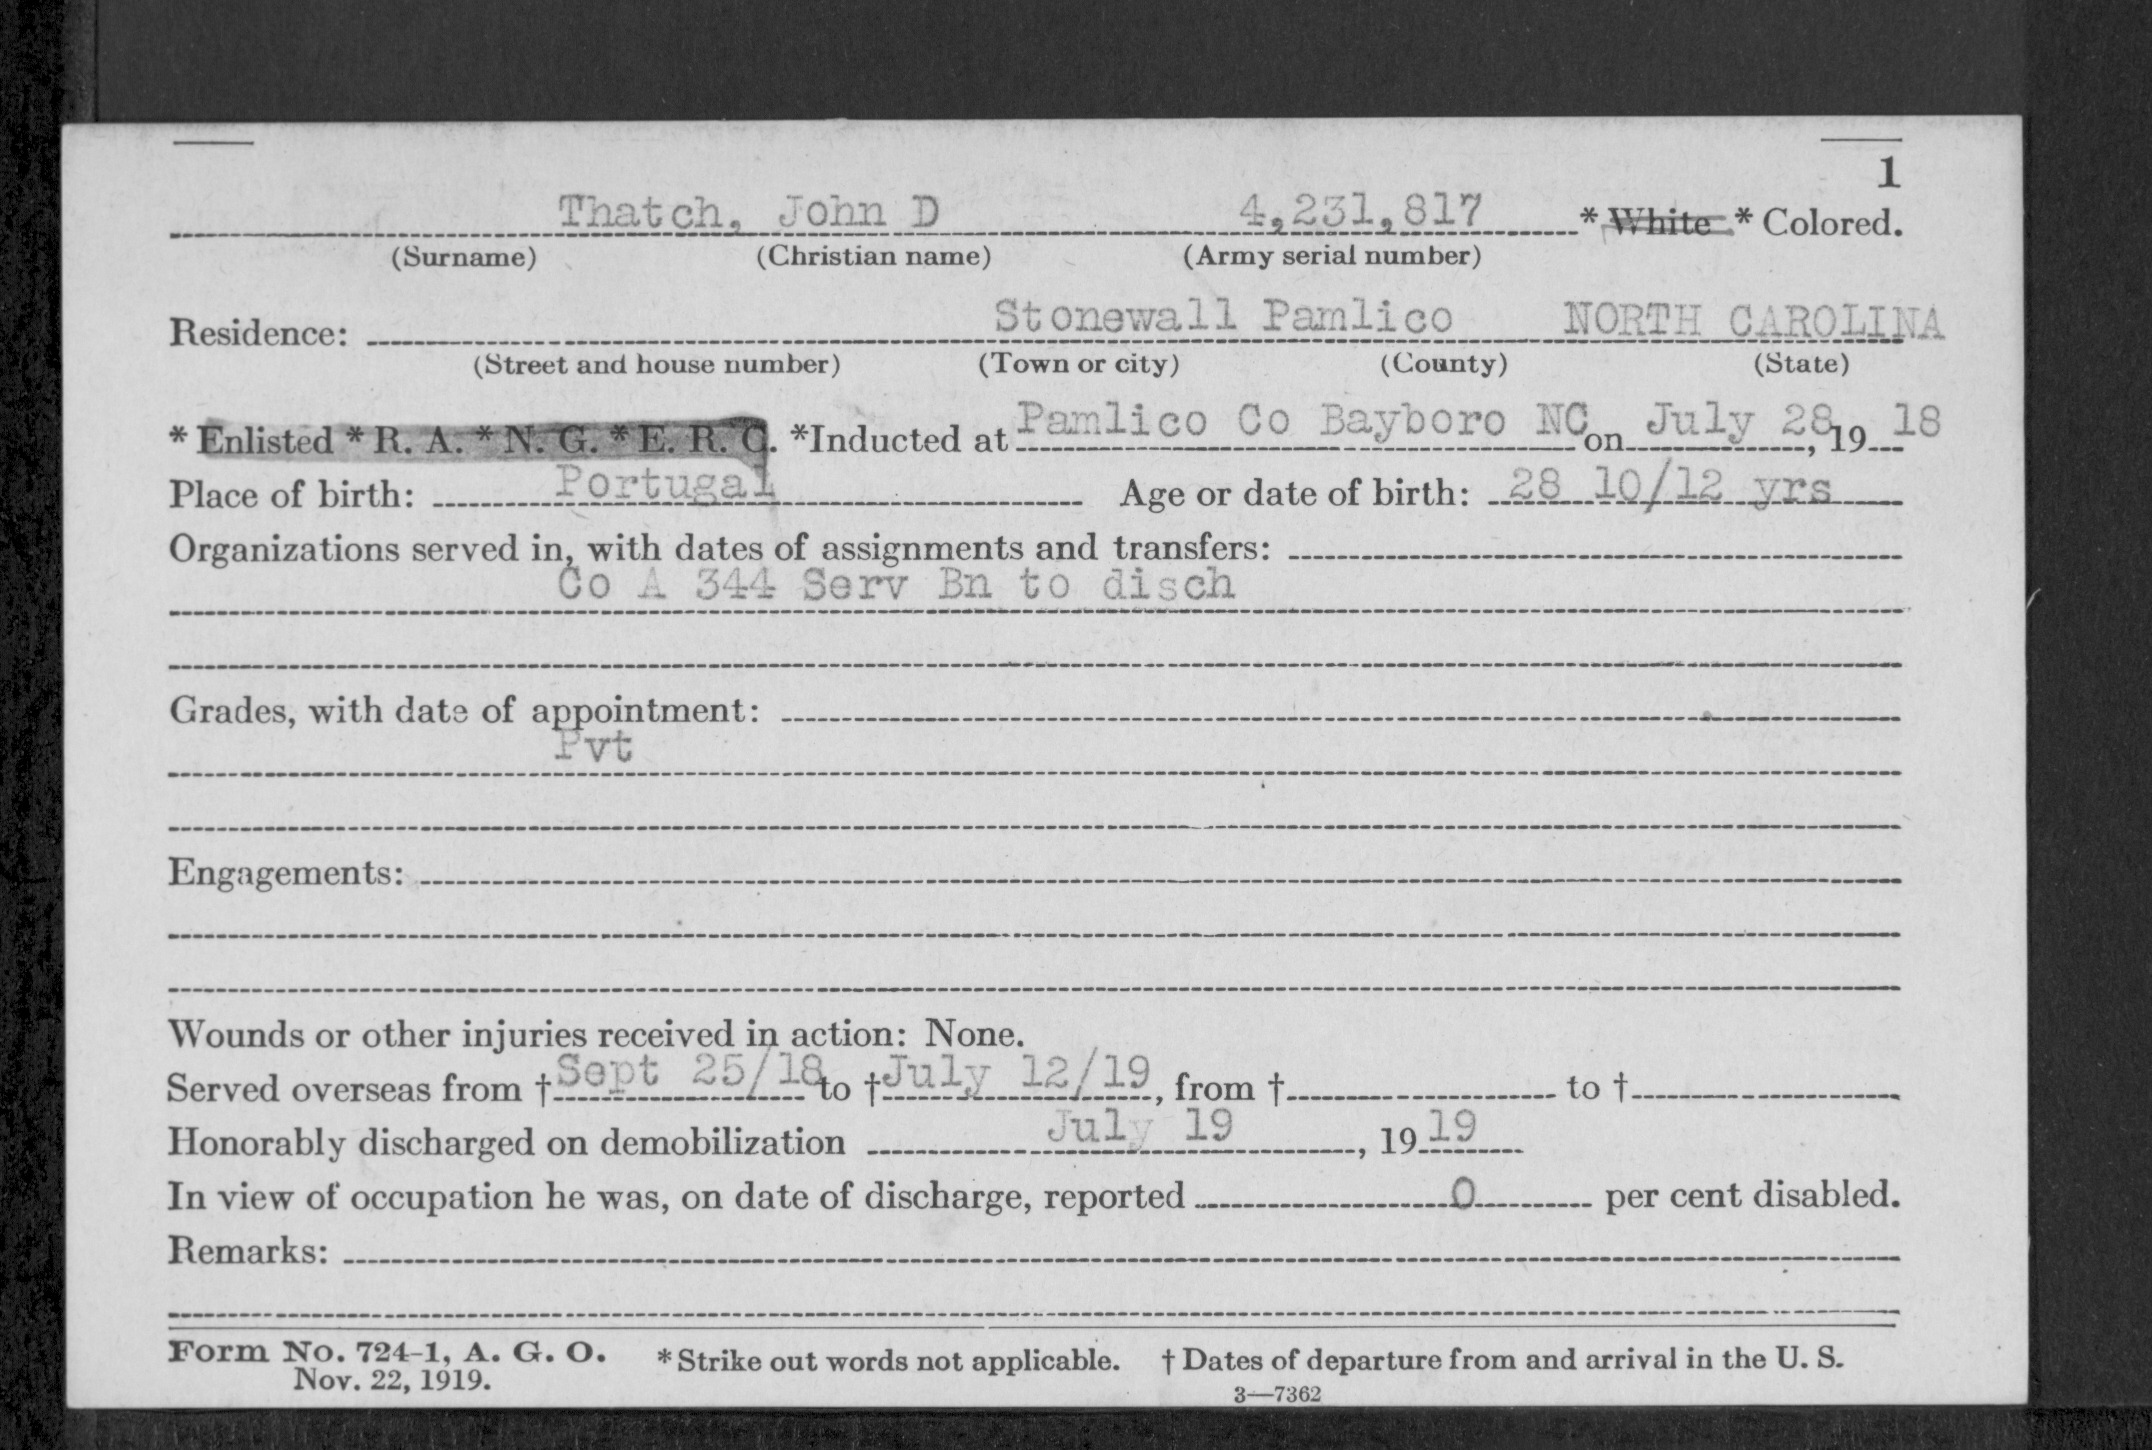 1
Thatch, John D 4,231,817 * White * Colored.
(Surname) (Christian name) (Army serial number)
Residence: Stonewall Pamlico NORTH CAROLINA
(Street and house number) (Town or city) (County) (State)
* Enlisted * R. A. * N. G. * E. R. C. *Inducted at Pamlico Co Bayboro NC on July 28, 19 18
Place of birth: Portugal Age or date of birth: 28 10/12 yrs
Organizations served in, with dates of assignments and transfers:
Co A 344 Serv Bn to disch
Grades, with date of appointment:
Pvt
Engagements:
Wounds or other injuries received in action: None.
Served overseas from † Sept 25/18 to † July 12/19, from † to †
Honorably discharged on demobilization July 19, 19 19
In view of occupation he was, on date of discharge, reported 0 per cent disabled.
Remarks:
Form No. 724-1, A. G. O. * Strike out words not applicable. † Dates of departure from and arrival in the U. S.
Nov. 22, 1919.
3—7362